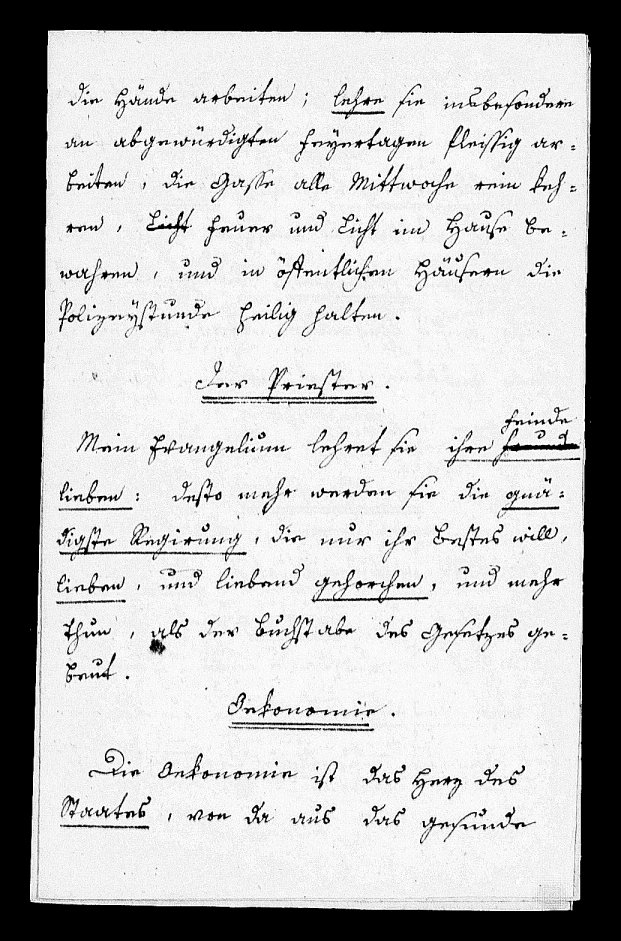 die Hände arbeiten; lehre sie insbesondere
an abgewürdigten Feyertagen fleissig ar-
beiten, die Gasse alle Mittwoche rein keh-
ren, Licht Feuer und Licht im Hause be-
wahren, und in öffentlichen Häusern die
Polizeystunde heilig halten.
Der Priester.
Feinde
Mein Evangelium lehret sie ihre Freund
lieben: desto mehr werden sie die gnä-
digste Regirung, die nur ihr Bestes will,
lieben, und liebend gehorchen, und mehr
thun, als der Buchstabe des Gesetzes ge-
beut.
Oekonomie.
Die Oekonomie ist das Herz des
Staates, von da aus das gesunde